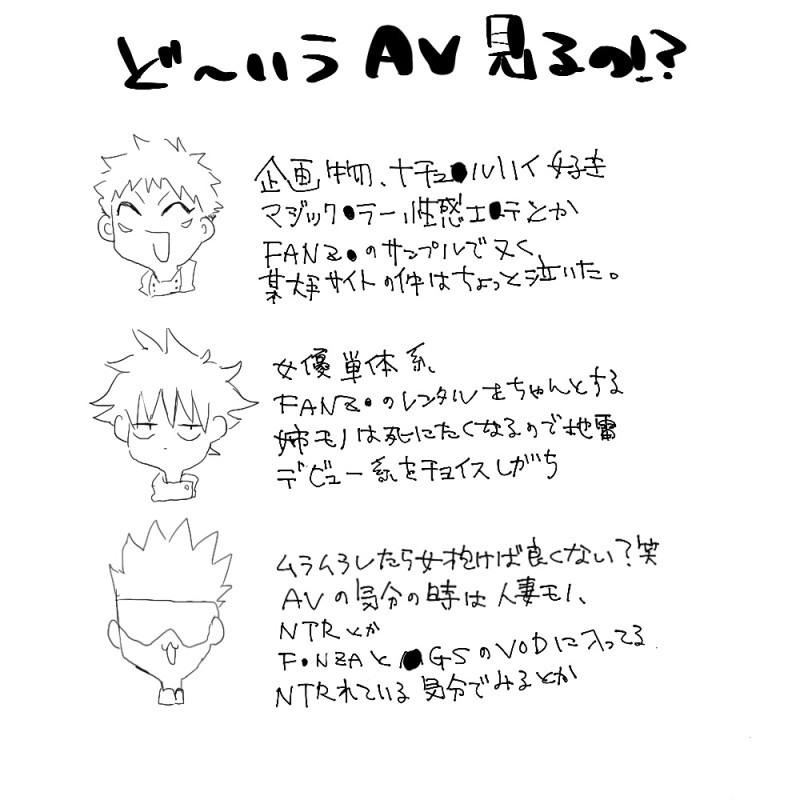 ど〜いうAV見るの!?
企画物、ナチュ●ルハイ好き
マジック●ラー、性感エ●テとか
FANZ●のサンプルでヌく、
某大手サイトの件はちょっと泣いた。
女優単体系、
FANZ●のレンタルをちゃんとする
姉モノは死にたくなるので地雷
デビュー系をチョイスしがち
ムラムラしたら女抱けば良くない?笑
AVの気分の時は人妻モノ、
NTRとか
F●NZAと●GSのVODに入ってる
NTRれている気分でみるとか